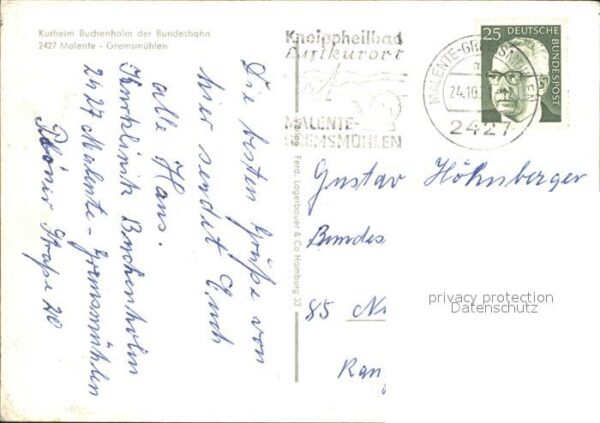 Kurheim Buchenholm der Bundesbahn
2427 Malente - Gremsmühlen
Kneippheilbad
Luftkurort
MALENTE-
GREMSMÜHLEN
MALENTE-GREMSMÜHLEN
24.10.
2427
25 DEUTSCHE BUNDESPOST
Die besten Grüße von
hier sendet Euch
alle Hans.
Kurklinik Buchenholm
2427 Malente - Gremsmühlen
Plöner Straße 20
Ferd. Lagerbauer & Co Hamburg 33
Gustav Höhnberger
Bundes
85 Nü
Ran
privacy protection
Datenschutz